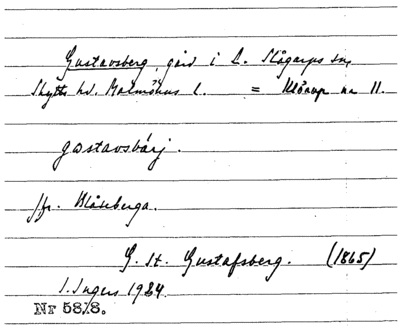 Gustavsberg, gård i L. Slågarps sn,
Skytts hd. Malmöhus l. = Klörup nr 11.
gɷstavsbärj.
Jfr. Blåseberga.
G. St. Gustafsberg. (1865)
I. Ingers 1924.
Nr 58/8.